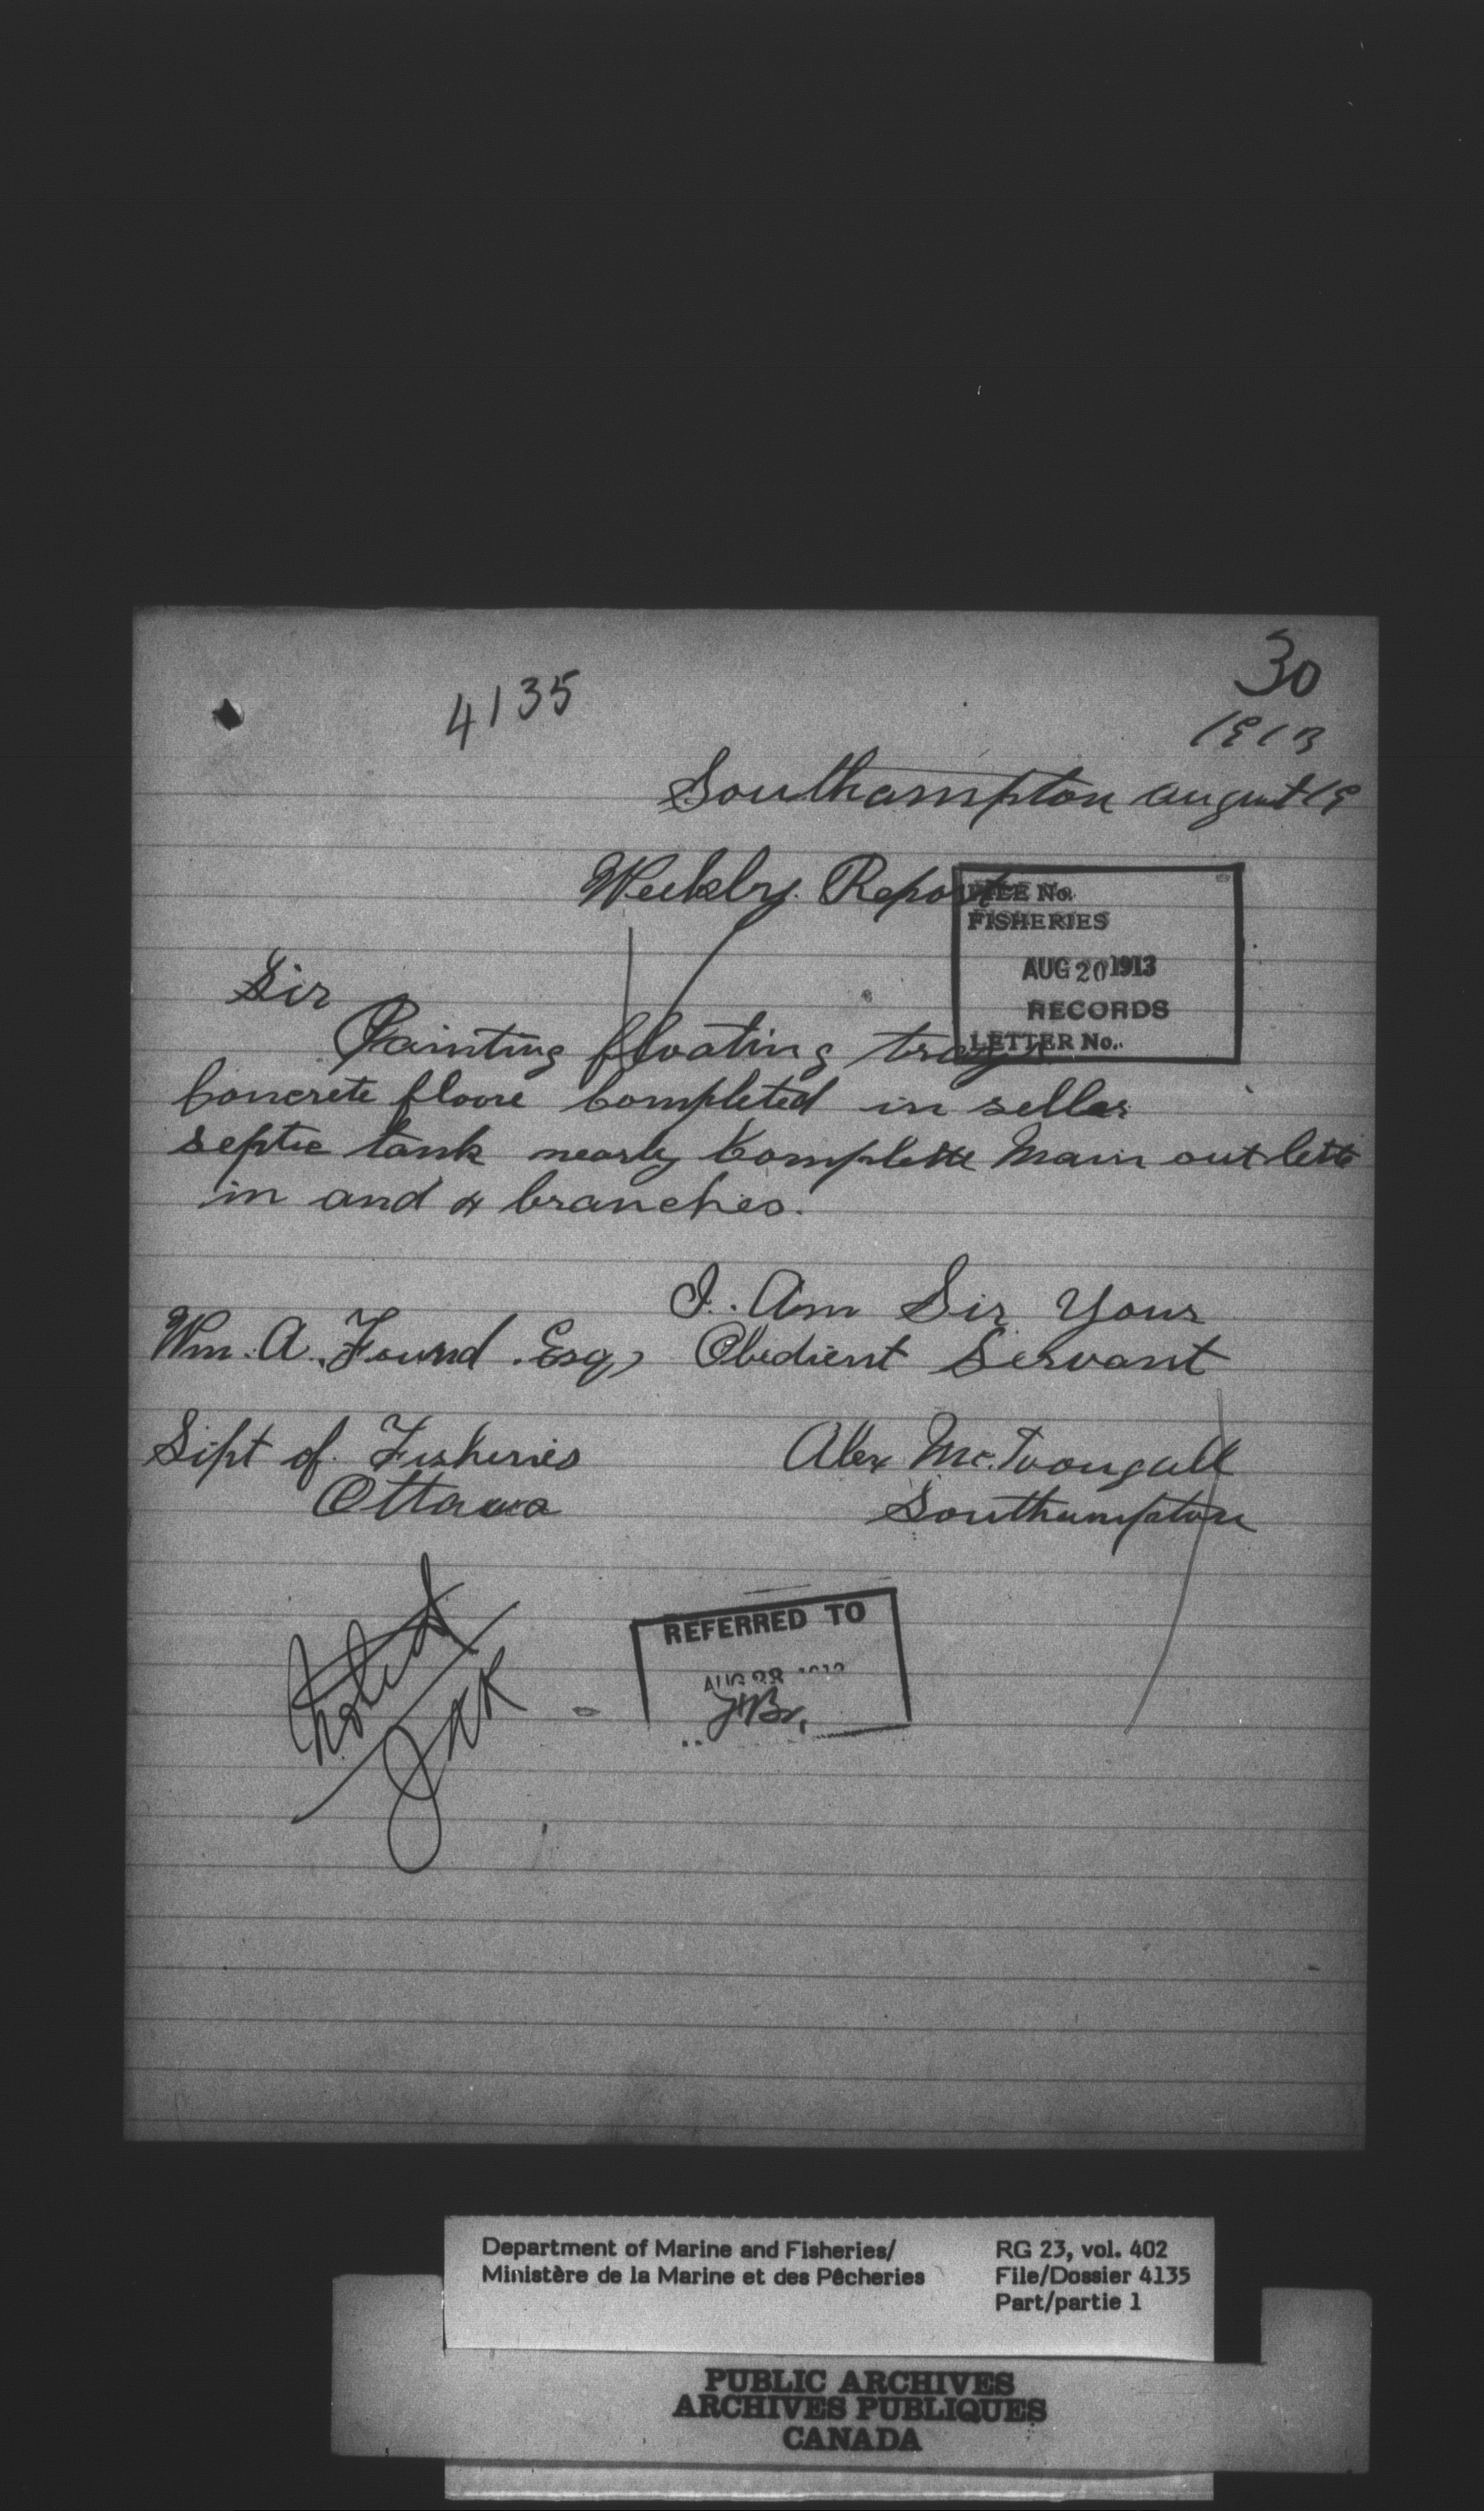 30
4135
1913
Southampton august 19
Weekly Report
FILE No.
FISHERIES
AUG 20 1913
RECORDS
LETTER No.
Sir
Painting floating trays
Concrete floore Completed in seller
septic tank nearly Complette Main out lette
in and 4 branches.
I. Am Sir Your
Wm. A. Found. Esq, Obedient Servant
Sipt of. Fisheries
Alex Mc.Dougall
Ottawa
Southampton
Noted
JAR
REFERRED TO
AUG 1913
Department of Marine and Fisheries/
Ministère de la Marine et des Pêcheries
RG 23, vol. 402
File/Dossier 4135
Part/partie 1
PUBLIC ARCHIVES
ARCHIVES PUBLIQUES
CANADA